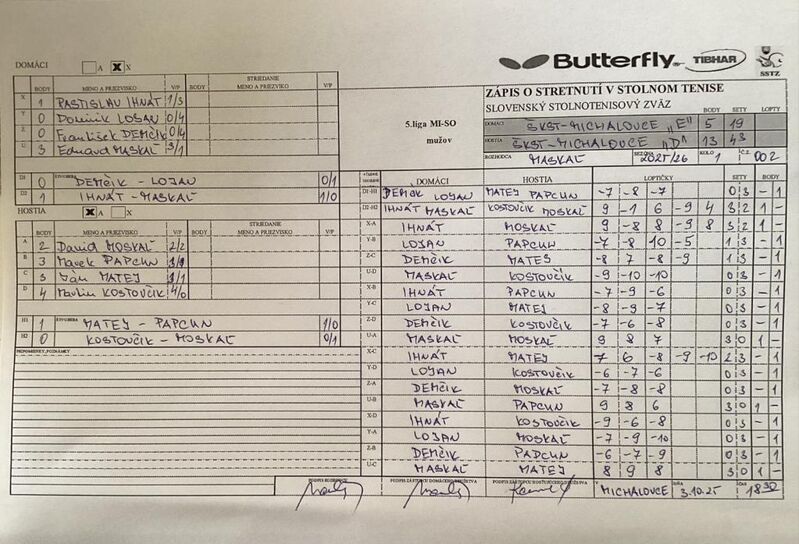 DOMÁCI A X X
BODY MENO A PRIEZVISKO V/P BODY STRIEDANIE MENO A PRIEZVISKO V/P
X 1 RASTISLAV IHNÁT 1/3
Y 0 Dominik LOJAN 0/4
Z 0 František DEMČIK 0/4
U 3 Eduard MASKAĽ 3/1
D1 0 ŠTVORHRA DEMČIK - LOJAN 0/1
D2 1 IHNÁT - MASKAĽ 1/0
HOSTIA X A X
BODY MENO A PRIEZVISKO V/P BODY STRIEDANIE MENO A PRIEZVISKO V/P
A 2 David MOSKAĽ 2/2
B 3 Marek PAPCUN 3/1
C 3 Ján MATEJ 3/1
D 4 KOSTOVČIK 4/0
H1 1 ŠTVORHRA MATEJ - PAPCUN 1/0
H2 0 KOSTOVČIK - MOSKAĽ 0/1
PRIPOMIENKY, POZNÁMKY
Butterfly TIBHAR SSTZ
5.liga MI-SO
mužov
ZÁPIS O STRETNUTÍ V STOLNOM TENISE
SLOVENSKÝ STOLNOTENISOVÝ ZVÄZ BODY SETY LOPTY
DOMÁCI ŠKST-MICHALOVCE „E" 5 19
HOSTIA ŠKST-MICHALOVCE „D" 13 43
ROZHODCA MASKAĽ SEZÓNA 2025/26 KOLO 1 Č.Z. 002
DOMÁCI HOSTIA LOPTIČKY SETY BODY
D1-H1 DEMČIK LOJAN MATEJ PAPCUN -7 -8 -7 0 3 - 1
D2-H2 IHNÁT MASKAĽ KOSTOVČIK MOSKAĽ 9 -1 6 -9 4 3 2 1 -
X-A IHNÁT MOSKAĽ 9 -8 8 -9 8 3 2 1 -
Y-B LOJAN PAPCUN -7 -8 10 -5 1 3 - 1
Z-C DEMČIK MATEJ -8 7 -8 -9 1 3 - 1
U-D MASKAĽ KOSTOVČIK -9 -10 -10 0 3 - 1
X-B IHNÁT PAPCUN -7 -9 -6 0 3 - 1
Y-C LOJAN MATEJ -8 -9 -7 0 3 - 1
Z-D DEMČIK KOSTOVČIK -7 -6 -8 0 3 - 1
U-A MASKAĽ MOSKAĽ 9 8 7 3 0 1 -
X-C IHNÁT MATEJ 7 6 -8 -9 -10 2 3 - 1
Y-D LOJAN KOSTOVČIK -6 -7 -6 0 3 - 1
Z-A DEMČIK MOSKAĽ -7 -8 -8 0 3 - 1
U-B MASKAĽ PAPCUN 9 8 6 3 0 1 -
X-D IHNÁT KOSTOVČIK -9 -6 -8 0 3 - 1
Y-A LOJAN MOSKAĽ -7 -9 -10 0 3 - 1
Z-B DEMČIK PAPCUN -6 -7 -9 0 3 - 1
U-C MASKAĽ MATEJ 8 9 8 3 0 1 -
PODPIS ROZHODCU PODPIS ZÁSTUPCU DOMÁCEHO DRUŽSTVA PODPIS ZÁSTUPCU HOSŤUJÚCEHO DRUŽSTVA V MICHALOVCE DŇA 3.10.25 ČAS 18:30